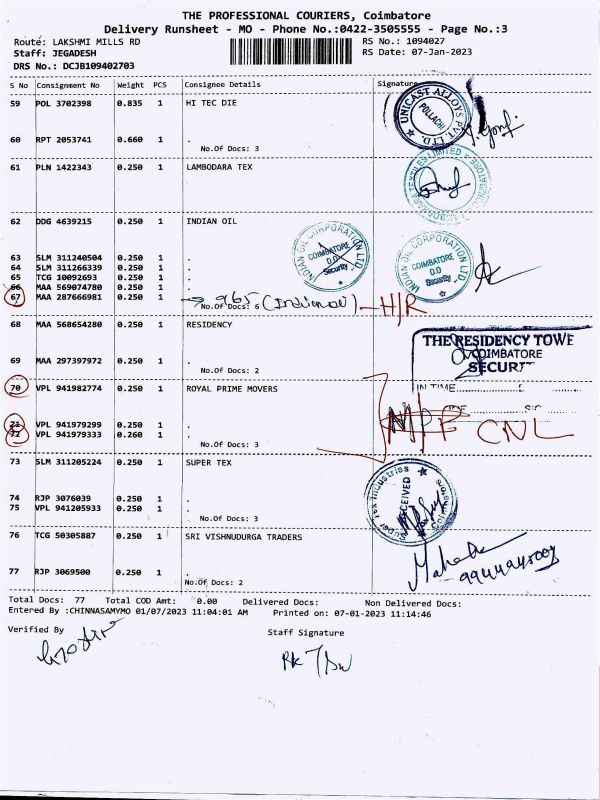 THE PROFESSIONAL COURIERS, Coimbatore
Delivery Runsheet - MO - Phone No.:0422-3505555 - Page No.:3
Route: LAKSHMI MILLS RD RS No.: 1094027
Staff: JEGADESH RS Date: 07-Jan-2023
DRS No.: DCJB109402703
S No Consignment No Weight PCS Consignee Details Signature
59 POL 3702398 0.835 1 HI TEC DIE
UNICAST ALLOYS PVT. LTD. POLLACHI
60 RPT 2053741 0.660 1 .
No.Of Docs: 3
61 PLN 1422343 0.250 1 LAMBODARA TEX
62 DDG 4639215 0.250 1 INDIAN OIL
INDIAN OIL CORPORATION LTD. COIMBATORE D.O Security
INDIAN OIL CORPORATION LTD. COIMBATORE D.O Security
63 SLM 311240504 0.250 1 .
64 SLM 311266339 0.250 1 .
65 TCG 10092693 0.250 1 .
66 MAA 569074780 0.250 1 .
67 MAA 287666981 0.250 1 . 965 (Indian oil) H/R
No.Of Docs: 6
68 MAA 568654280 0.250 1 RESIDENCY
THE RESIDENCY TOWE
COIMBATORE
SECURIT
69 MAA 297397972 0.250 1 .
No.Of Docs: 2
IN TIME
70 VPL 941982774 0.250 1 ROYAL PRIME MOVERS
71 VPL 941979299 0.250 1 .
72 VPL 941979333 0.260 1 .
CNL
No.Of Docs: 3
73 SLM 311205224 0.250 1 SUPER TEX
Super tex Industries RECEIVED
74 RJP 3076039 0.250 1 .
75 VPL 941205933 0.250 1 .
No.Of Docs: 3
76 TCG 50305887 0.250 1 SRI VISHNUDURGA TRADERS
77 RJP 3069500 0.250 1 .
No.Of Docs: 2
Total Docs: 77 Total COD Amt: 0.00 Delivered Docs: Non Delivered Docs:
Entered By :CHINNASAMYMO 01/07/2023 11:04:01 AM Printed on: 07-01-2023 11:14:46
Verified By Staff Signature